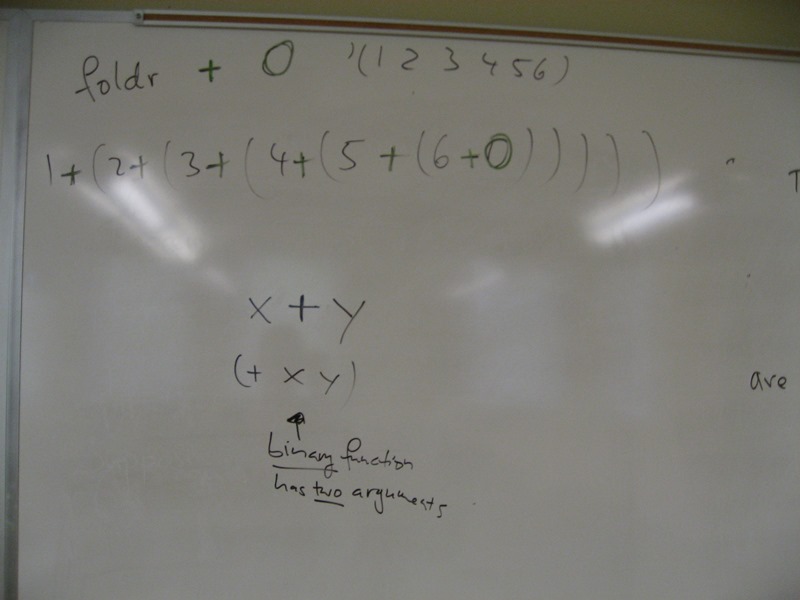 foldr + 0 '(1 2 3 4 5 6)
1+(2+(3+(4+(5+(6+0)))))
T
x + y
(+ x y)
are
binary function
has two arguments